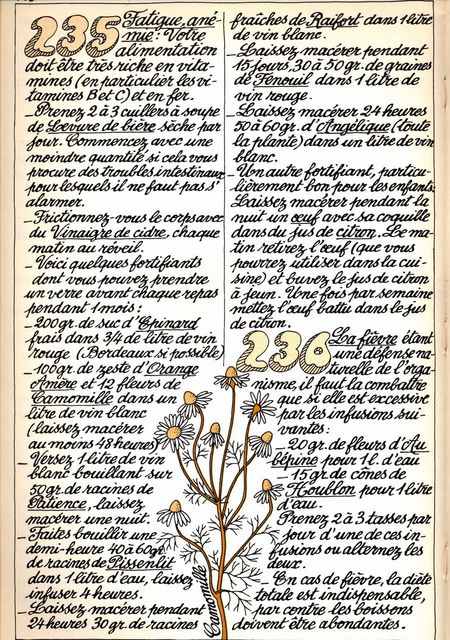 235 Fatigue, ané-
mie: Votre
alimentation
doit être très riche en vita-
mines (en particulier les vi-
tamines B et C) et en fer.
_ Prenez 2 à 3 cuillers à soupe
de Levure de bière sèche par
jour. Commencez avec une
moindre quantité si cela vous
procure des troubles intestinaux
pour lesquels il ne faut pas s'
alarmer.
_ Frictionnez-vous le corps avec
du Vinaigre de cidre, chaque
matin au réveil.
_ Voici quelques fortifiants
dont vous pouvez prendre
un verre avant chaque repas
pendant 1 mois:
_ 200gr. de suc d'Epinard
frais dans 3/4 de litre de vin
rouge (Bordeaux si possible)
_ 100gr. de zeste d'Orange
Amère et 12 fleurs de
Camomille dans un
litre de vin blanc
(laissez macérer
au moins 48 heures)
_ Versez 1 litre de vin
blanc bouillant sur
50gr. de racines de
Patience, laissez
macérer une nuit.
_ Faites bouillir une
demi-heure 40 à 60gr.
de racines de Pissenlit
dans 1 litre d'eau, laissez
infuser 4 heures.
_ Laissez macérer pendant
24 heures 30 gr. de racines
fraîches de Raifort dans 1 litre
de vin blanc.
_ Laissez macérer pendant
15 jours, 30 à 50 gr. de graines
de Fenouil dans 1 litre de
vin rouge.
_ Laissez macérer 24 heures
50 à 60gr. d'Angélique (toute
la plante) dans un litre de vin
blanc.
_ Un autre fortifiant, particu-
lièrement bon pour les enfants:
Laissez macérer pendant la
nuit un œuf avec sa coquille
dans du jus de citron. Le ma-
tin retirez l'œuf (que vous
pourrez utiliser dans la cui-
sine) et buvez le jus de citron
à jeun. Une fois par semaine
mettez l'œuf battu dans le jus
de citron.
236 La fièvre étant
une défense na-
turelle de l'orga-
nisme, il faut la combattre
que si elle est excessive
par les infusions sui-
vantes:
_ 20 gr. de fleurs d'Au
bépine pour 1 l. d'eau
_ 15 gr. de cônes de
Houblon pour 1 litre
d'eau.
Prenez 2 à 3 tasses par
jour d'une de ces in-
fusions ou alternez les
deux.
_ En cas de fièvre, la diète
totale est indispensable,
par contre les boissons
doivent être abondantes.
Camomille